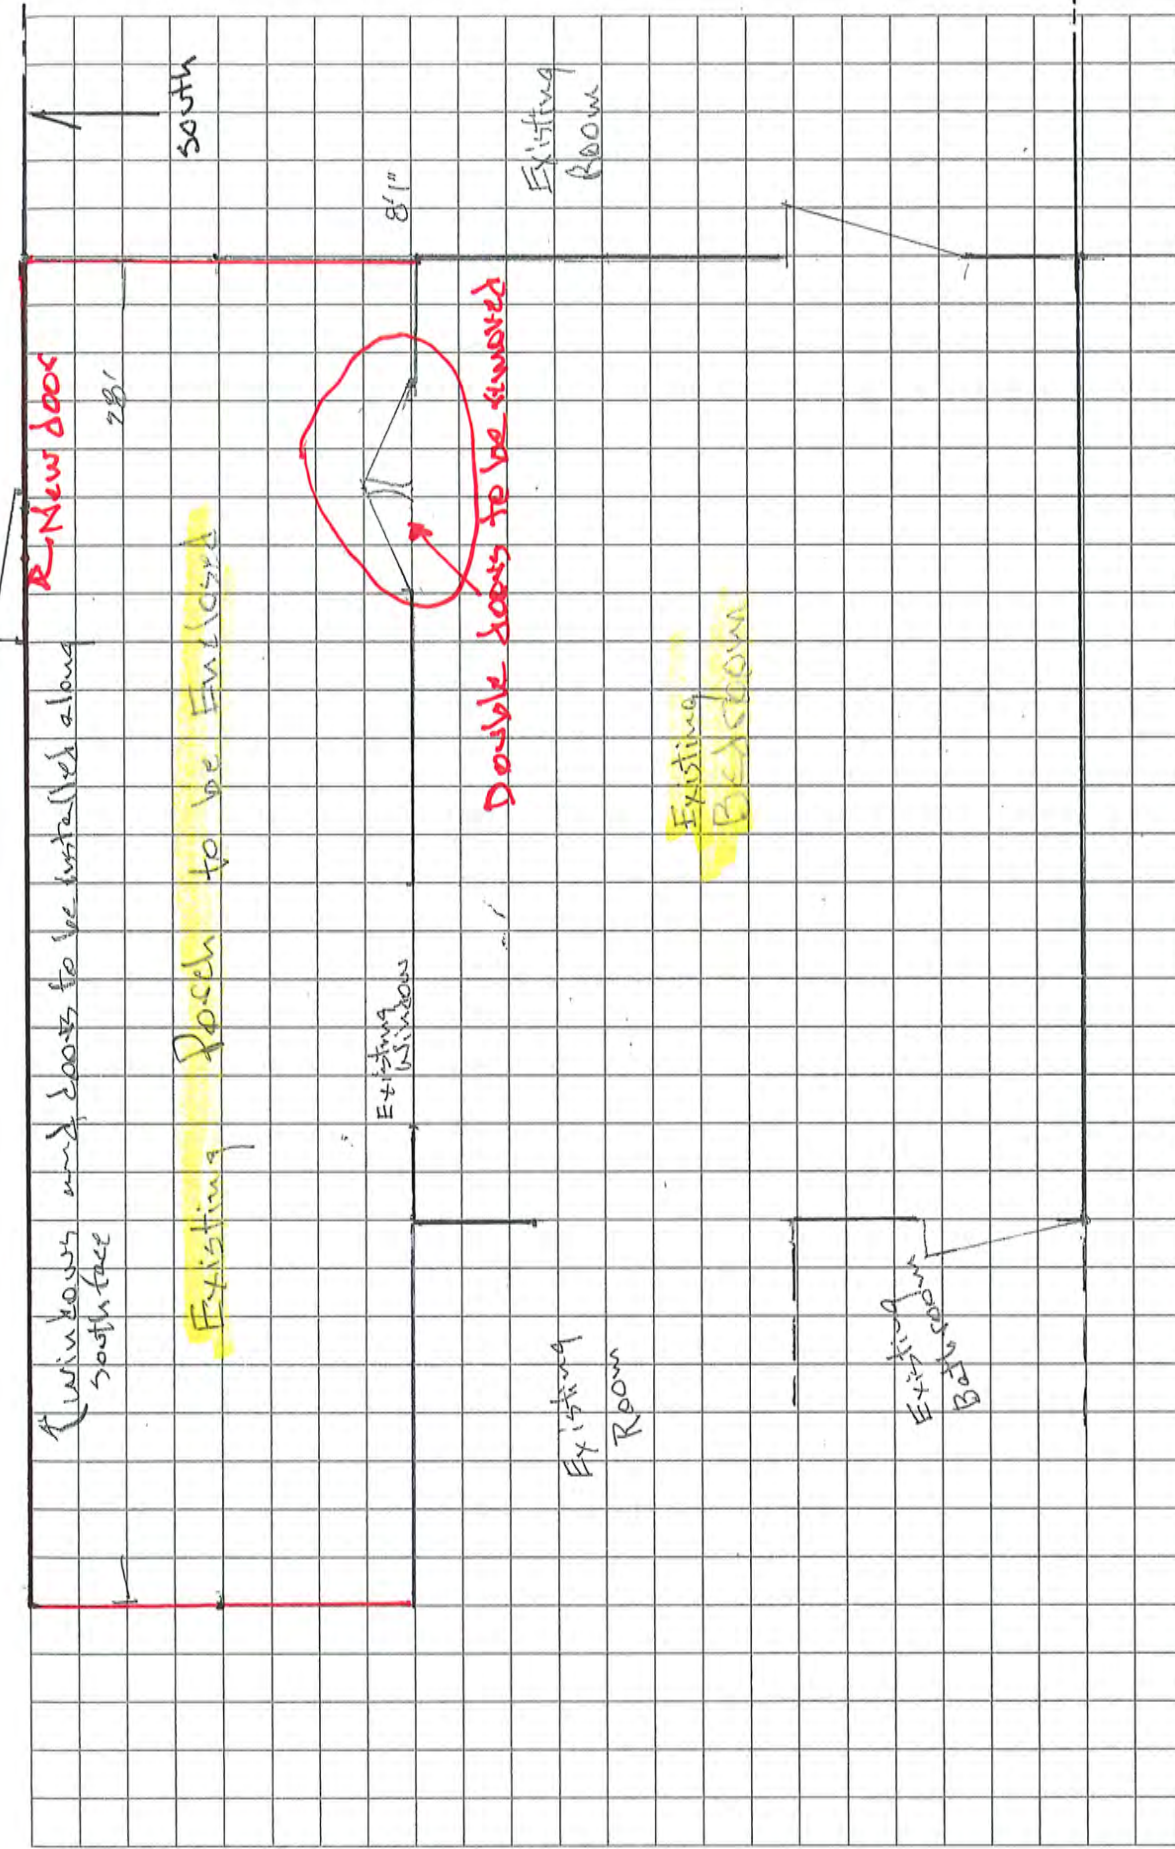 South
New door
28'
Windows and doors to be installed along
south face
Existing Porch to be Enclosed
8'1"
Existing
Room
Double doors to be removed
Existing
Window
Existing
Bedroom
Existing
Room
Existing
Bathroom